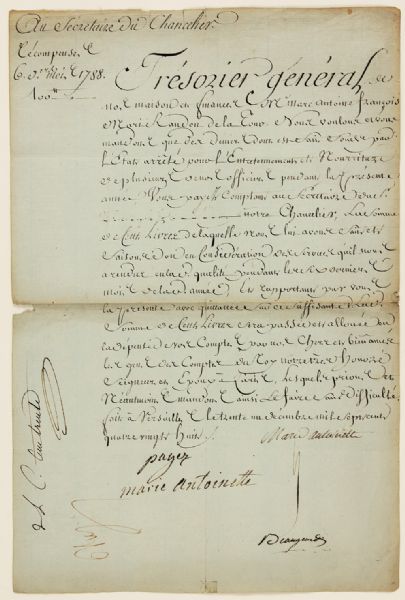 Au Secretaire du Chancelier.
Récompense
6 d.ers mois 1788.
100
Trésorier général de
nos maison et finances M.e Marc Antoine François
Marie Randon de la Tour, Nous voulons et vous
mandons que des deniers dont est fait fonds par
l'Etat arrêté pour l'Entretenement et Nourriture
de plusieurs de nos officiers pendant la presente
année Vous payez Comptant au Secretaire de
notre Chancelier, La somme
de Cent Livres de laquelle nous lui avons fait et
faisons don en Consideration des services qu'il nous
a rendus en la d. qualité pendant les six derniers
mois de la d. année Et rapportant par vous
la presente avec quittance sur ce suffisante La d.
Somme de Cent Livres sera passée et allouée en
la dépense de vos Comptes par nos Chers et bien amés
les gens des Comptes du Roy notre tres Honoré
Seigneur et Epoux à Paris, lesquels prions et
Neantmoins mandons ainsi le faire sans difficulté.
fait à Versailles le trente un decembre mil sept cent
quatre vingt huit. Marie antoinette
payez
marie antoinette
Beaugeard